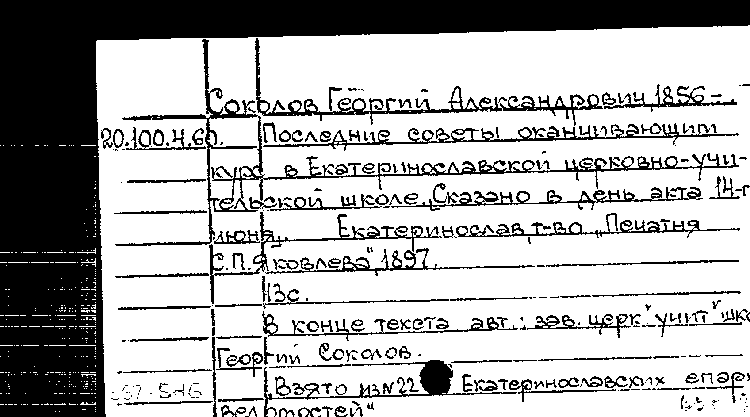 Соколов, Георгий Александрович, 1856 –
20.100.4.60. Последние советы оканчивающим
курс в Екатеринославской церковно-учи-
тельской школе. „Сказано в день акта 14-г
июня„. Екатеринослав, т-во „Печатня
С.П. Яковлева", 1897.
13с.
В конце текста авт.: зав. церк. учит. шко
Георгий Соколов.
„Взято из N22 Екатеринославских епарх
ведомостей"